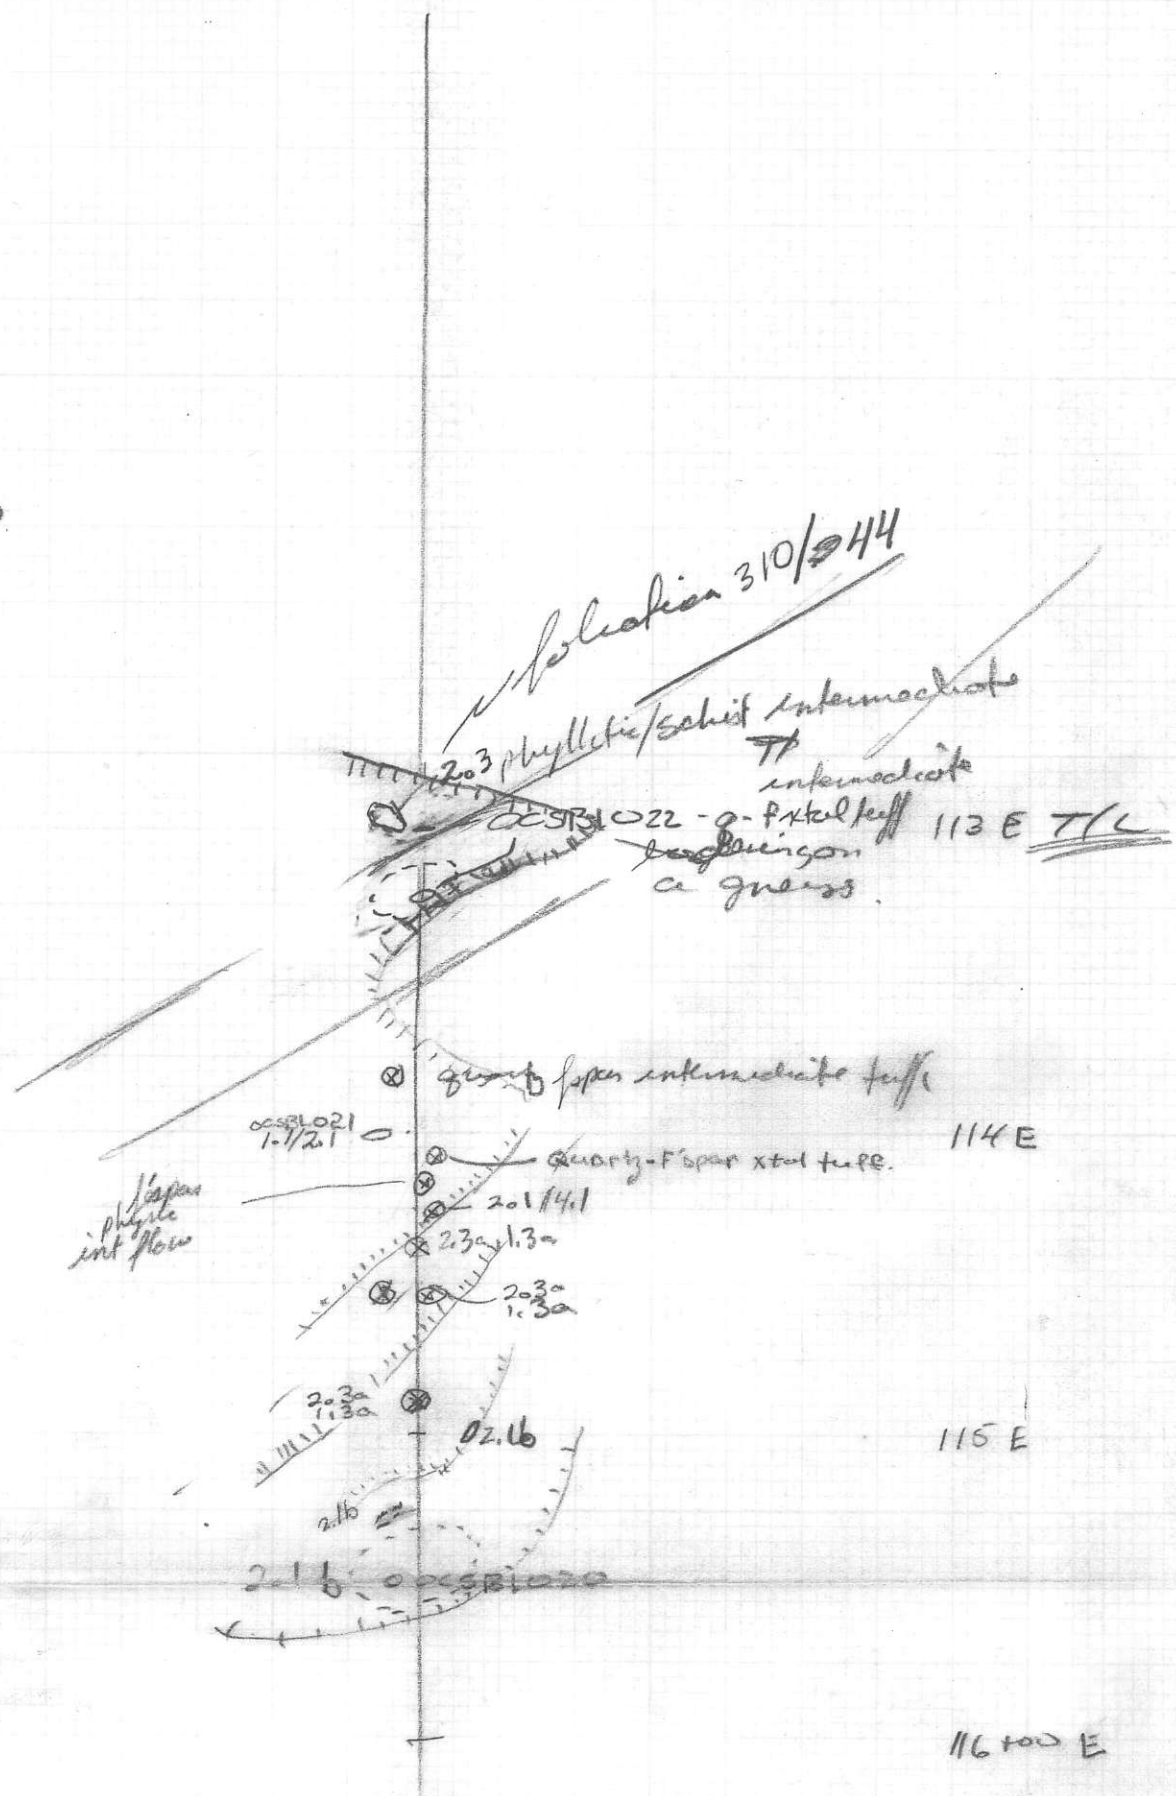 foliation 310/044
2.3 phylletic/schist intermediate
intermediate
OCSBLO22 - q - f xtal tuff 113 E T/L
a gneiss.
fspar intermediate tuff
OCSBLO21
1.1/2.1
114 E
Quartz-F'spar xtal tuff.
f'spar
phyric
int flow
2.1/4.1
2.3a 1.3a
2.3a
1.3a
2.3a
1.3a
2.1b
115 E
2.1b
2.1b OCSBLO20
116+00 E